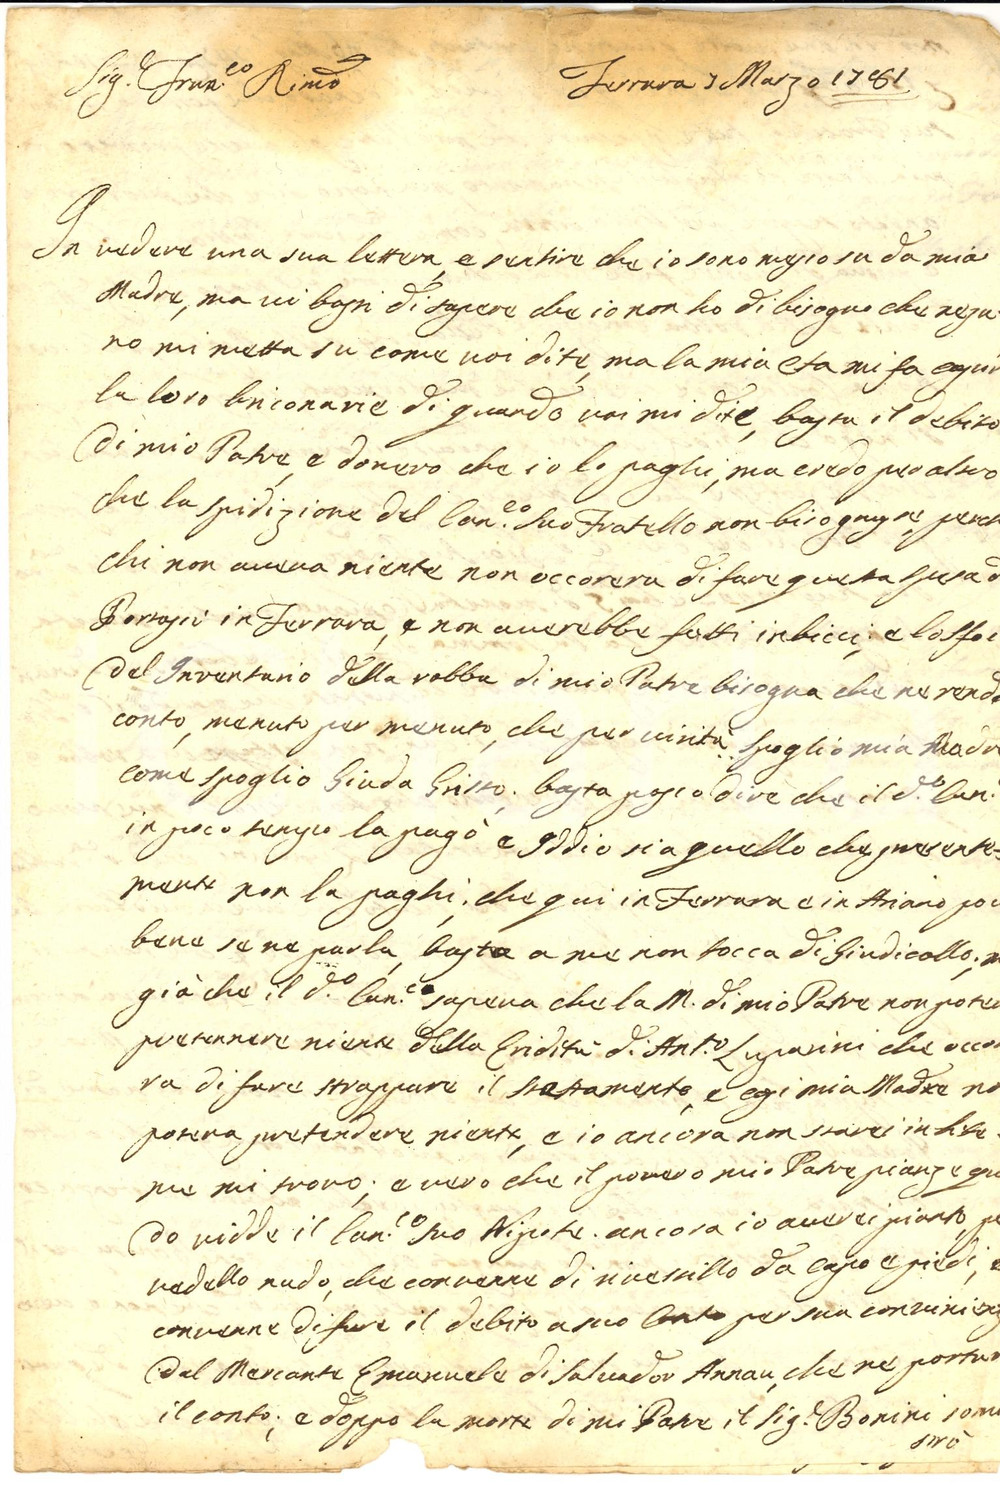 Sig.r Fran.co Rimo
Ferrara 7 Marzo 1781
In vedere una sua lettera, e sentire che io sono messo su da mia
Madre, ma vi basti di sapere che io non ho di bisogno che nesu-
no mi metta su come voi dite, ma la mia eta mi fa capir
la loro briconarie di quando voi mi dite, basta il debito
di mio Patre, e donero che io lo paghi, ma credo per altro
che la spidizione del Can.co suo Fratello non bisognase, perch
chi non aveva niente non occorera di fare questa spesa d
Portasi in Ferrara, e non averebbe fatti inbicci, e lo sfo
del Inventario della robba di mio Patre bisogna che ne rend
conto, menuto per menuto, che per virità spoglio mia Madre
come spoglio Giuda Cristo, basta posso dire che il d.o Can.
in poco tempo la pagò e Iddio sia quello che presente-
mente non la paghi, che qui in Ferrara e in Ariano poc
bene se ne parla, basta a me non tocca di Giudicallo, m
già che il d.o Can.co sapeva che la M. di mio Patre non pote
pretennere niente della Eridità di Ant.o Luparini che occo
ra di fare strappare il testtamento, e cosi mia Madre no
poteva pretendere niente, e io ancora non starei in lite
me mi trovo, e vero che il povero mio Patre pianze qu
do vidde il Can.co suo Nipote. ancora io averei pianto, pe
vedello nudo, che convenne di rivestillo da capo e piedi, e
convenne di fare il debito a suo Conto per sua convinienz
dal Mercante Emanuele di Salvador Annau, che ne portar
il conto, e doppo la morte di mi Patre il Sig.r Bonini som
strò